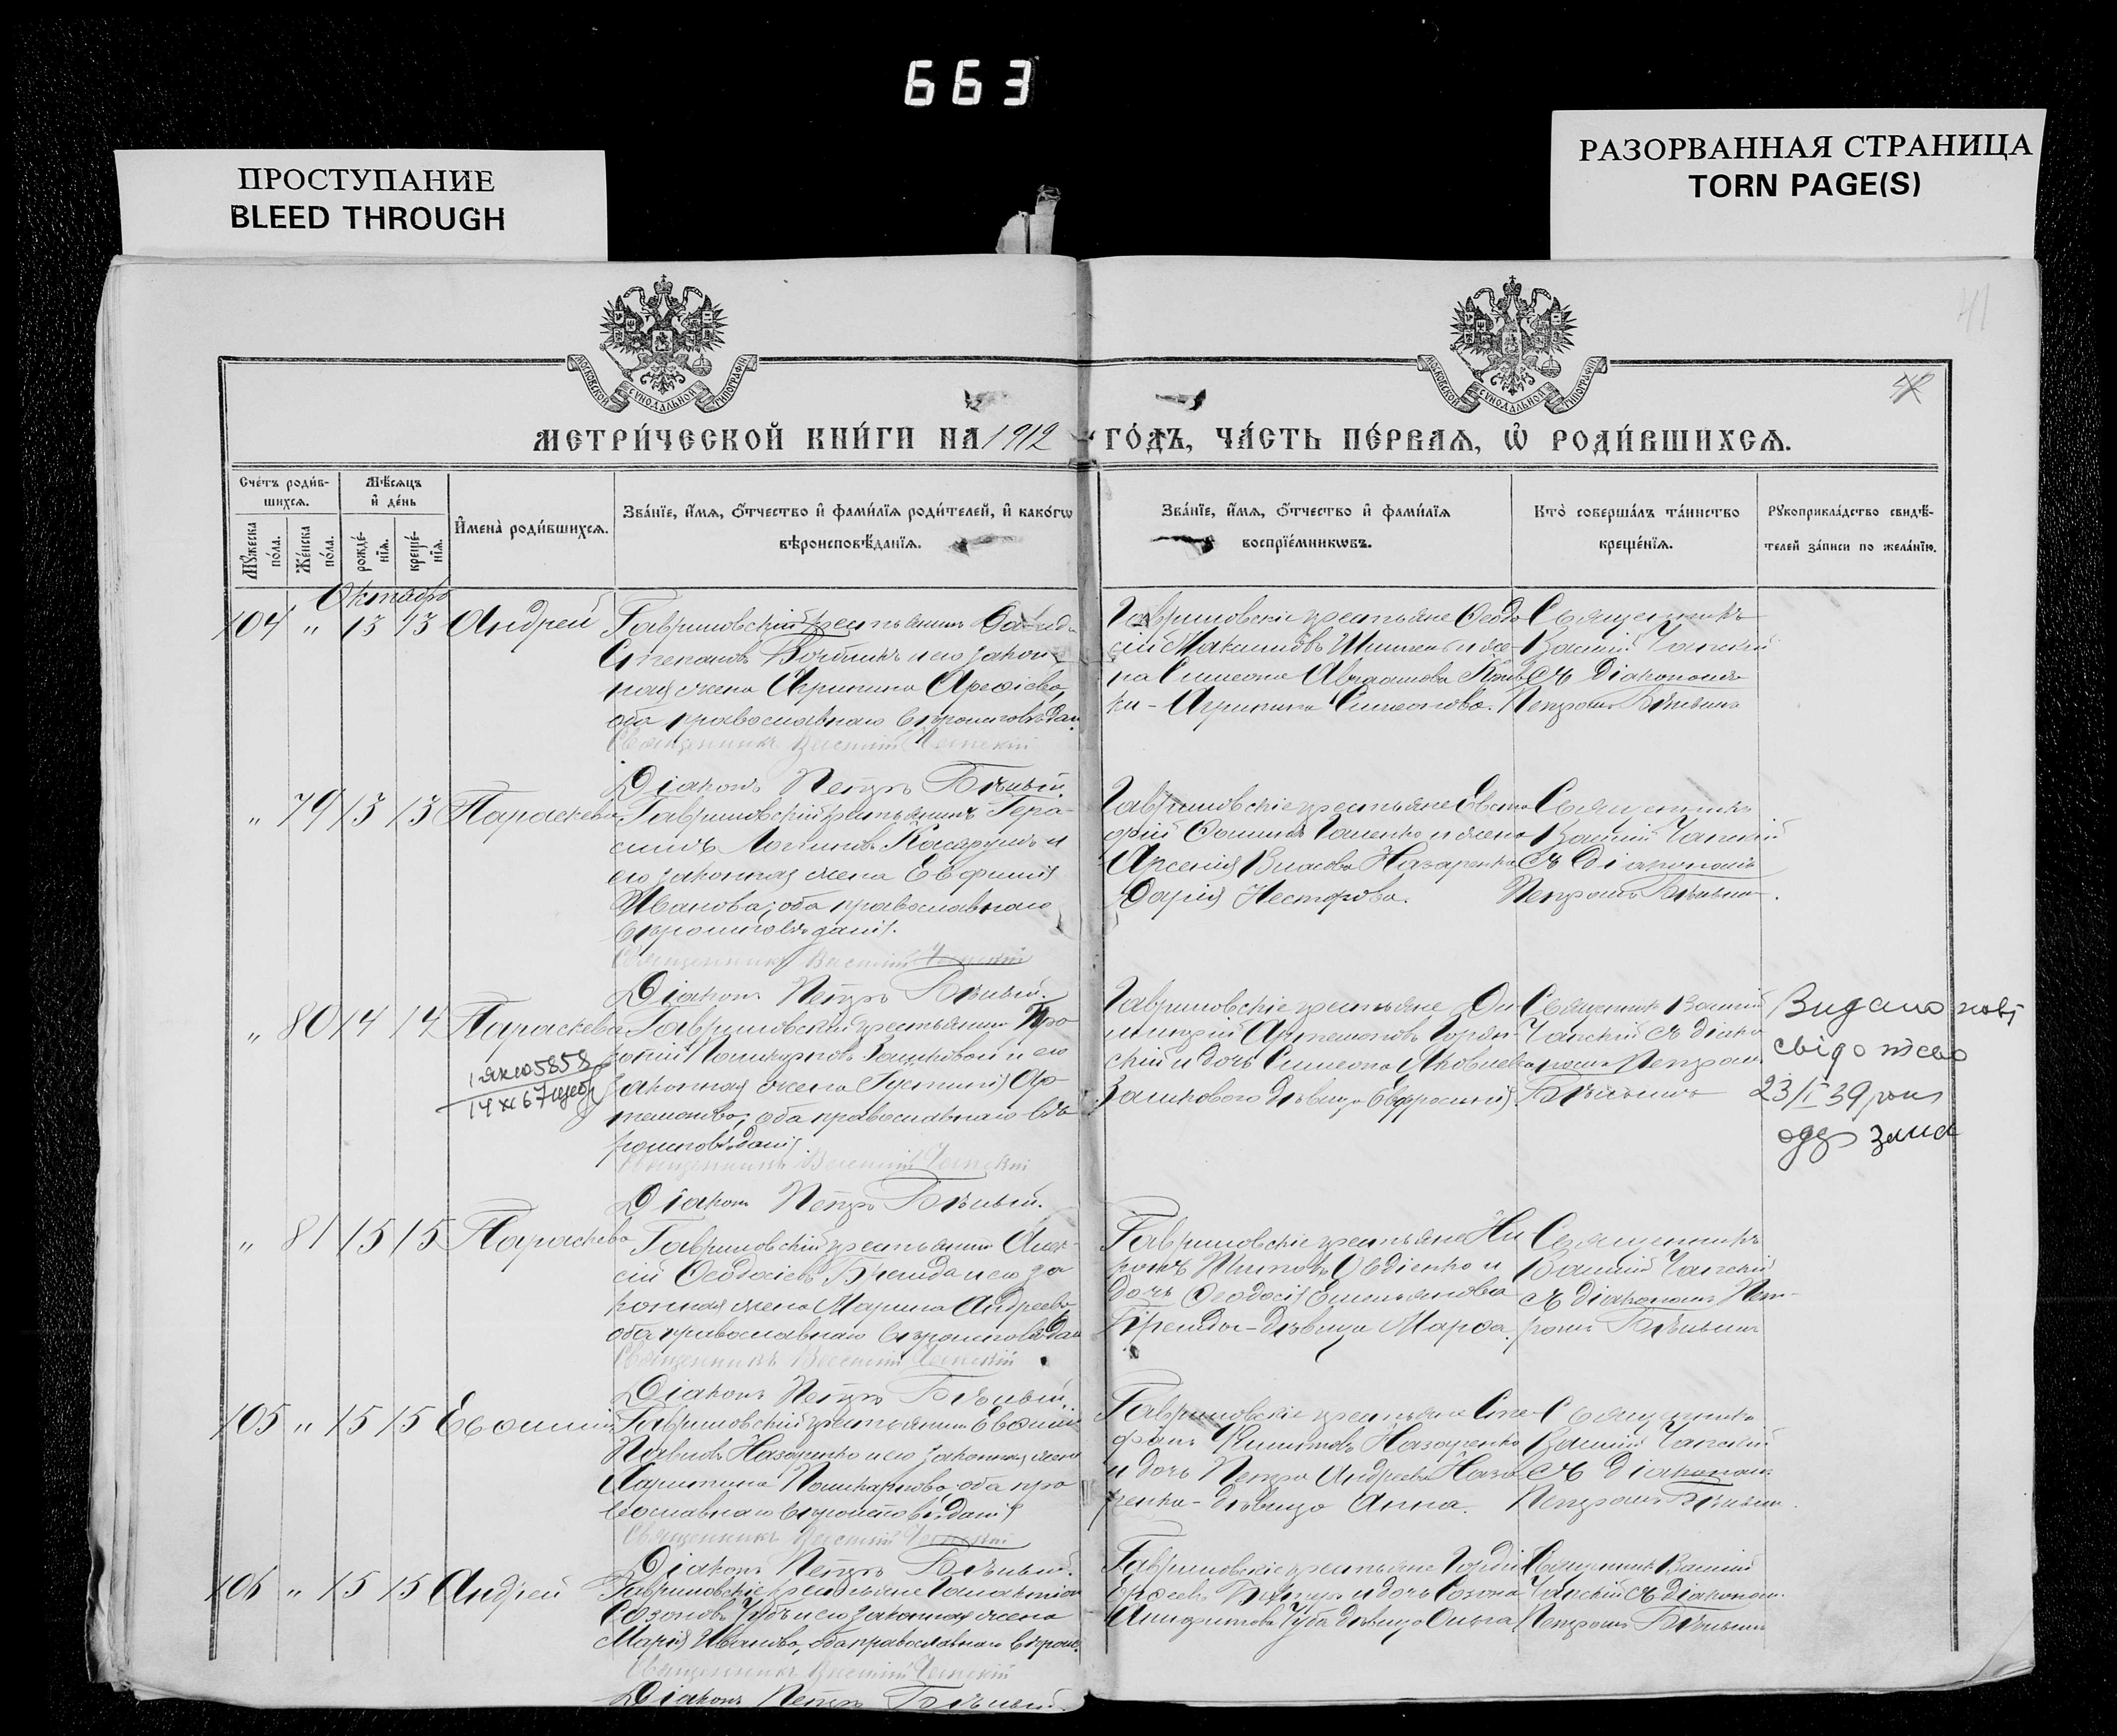 663
ПРОСТУПАНИЕ
BLEED THROUGH
РАЗОРВАННАЯ СТРАНИЦА
TORN PAGE(S)
41
МОСКОВСКОЙ СѴНОДАЛЬНОЙ ТИПОГРАФІИ
МОСКОВСКОЙ СѴНОДАЛЬНОЙ ТИПОГРАФІИ
МЕТРИ́ЧЕСКОЙ КНИ́ГИ НА 1912 ГО́ДЪ, ЧА́СТЬ ПЕ́РВАѦ, Ѡ҆ РОДИ́ВШИХСѦ.
Сче́тъ роди́в-
шихсѧ.
Мꙋжеска
по́ла.
Же́нска
по́ла.
Мѣ́сѧцъ
и҆ де́нь
рожде́-
нїѧ.
креще́-
нїѧ.
И҆мена̀ роди́вшихсѧ.
Зва́нїе, и҆́мѧ, ѻ҆́тчество и҆ фами́лїѧ роди́телей, и҆ како́гѡ
вѣроисповѣ́данїѧ.
Зва́нїе, и҆́мѧ, ѻ҆́тчество и҆ фами́лїѧ
воспрїе́мникѡвъ.
Кто̀ соверша́лъ та́инство
креще́нїѧ.
Рꙋкоприкла́дство свидѣ́-
телей за́писи по жела́нїю.
Октябрь
104 " 13 13 Андрей
Гавриловскій крестьянинъ
Степановъ и его закон-
ная жена Агрипина Арефіева,
оба православнаго вѣроисповѣдан.
Священникъ Василій Чапскій
Діаконъ Петръ Бѣлый.
Гавриловскіе крестьяне Ѳеодо-
сій Максимовъ и же-
на Симеона
ки - Агрипина Симеонова.
Священникъ
Василій Чапскій
съ діакономъ
Петромъ Бѣлымъ
" 79 13 13 Параскева
Гавриловскій крестьянинъ Гера-
симъ Логиновъ и
его законная жена Евфимія
Иванова; оба православнаго
вѣроисповѣданія.
Священникъ Василій Чапскій
Діаконъ Петръ Бѣлый.
Гавриловскіе крестьяне Евста-
фій и жена
Арсенія Власова Назаренка
Дарія Несторова.
Священникъ
Василій Чапскій
съ діакономъ
Петромъ Бѣлымъ.
" 80 14 14 Параскева
Гавриловскій крестьянинъ Про-
копій Поликарповъ Зашковой и его
законная жена Іустинія Ар-
темонова; оба православнаго вѣ-
роисповѣданія.
Священникъ Василій Чапскій
Діаконъ Петръ Бѣлый.
Гавриловскіе крестьяне Ди-
митрій Артемоновъ
скій и дочь Симеона Яковлева
Зашковаго дѣвица Евфросинія.
Священникъ Василій
Чапскій съ діако-
номъ Петромъ
Бѣлымъ
Видано нові
свідотство
23/I 39 року
" 81 15 15 Параскева
Гавриловскій крестьянинъ Алек-
сій Ѳеодосіевъ и его за-
конная жена Марина Андреева,
оба православнаго вѣроисповѣдан
Священникъ Василій Чапскій
Діаконъ Петръ Бѣлый.
Гавриловскіе крестьяне Ни-
конъ Титовъ Овдіенко и
дочь Ѳеодосія Емельянова
дѣвица Марѳа.
Священникъ
Василій Чапскій
съ діакономъ Пет-
ромъ Бѣлымъ
105 " 15 15 Евѳимій
Гавриловскій крестьянинъ Евѳимій
Павловъ Назаренко и его законная жена
Харитина Поликарпова, оба пра-
вославнаго вѣроисповѣданія
Священникъ Василій Чапскій
Діаконъ Петръ Бѣлый.
Гавриловскіе крестьяне Сте-
фанъ Филиповъ Назаренко
и дочь Петра Андреева Наза-
ренка - дѣвица Анна.
Священникъ
Василій Чапскій
съ діакономъ
Петромъ Бѣлымъ.
106 " 15 15 Андрей
Гавриловскіе крестьяне Галактіонъ
Созоновъ Чуб и его законная жена
Марія Иванова, оба православнаго вѣроис.
Священникъ Василій Чапскій
Діаконъ Петръ Бѣлый.
Гавриловскіе крестьяне Гордій
и дочь Созона
Чуба дѣвица Ольга
Священникъ Василій
Чапскій съ діакономъ
Петромъ Бѣлымъ